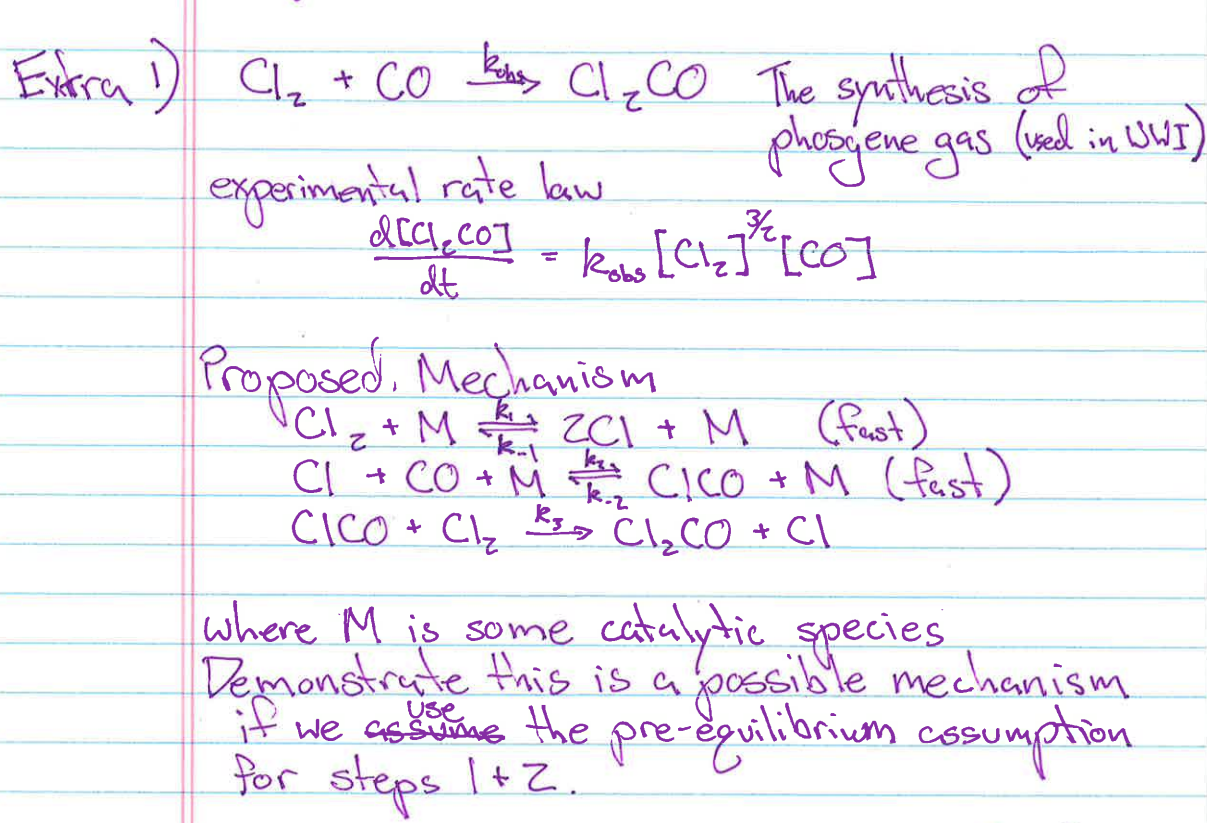 Extra 1) Cl₂ + CO →(k_obs) Cl₂CO The synthesis of
phosgene gas (used in WWI)
experimental rate law
d[Cl₂CO]/dt = k_obs [Cl₂]^3/2 [CO]
Proposed Mechanism
Cl₂ + M ⇌(k₁, k₋₁) 2Cl + M (fast)
Cl + CO + M ⇌(k₂, k₋₂) ClCO + M (fast)
ClCO + Cl₂ →(k₃) Cl₂CO + Cl
where M is some catalytic species
Demonstrate this is a possible mechanism
if we ~~assume~~ use the pre-equilibrium assumption
for steps 1+2.